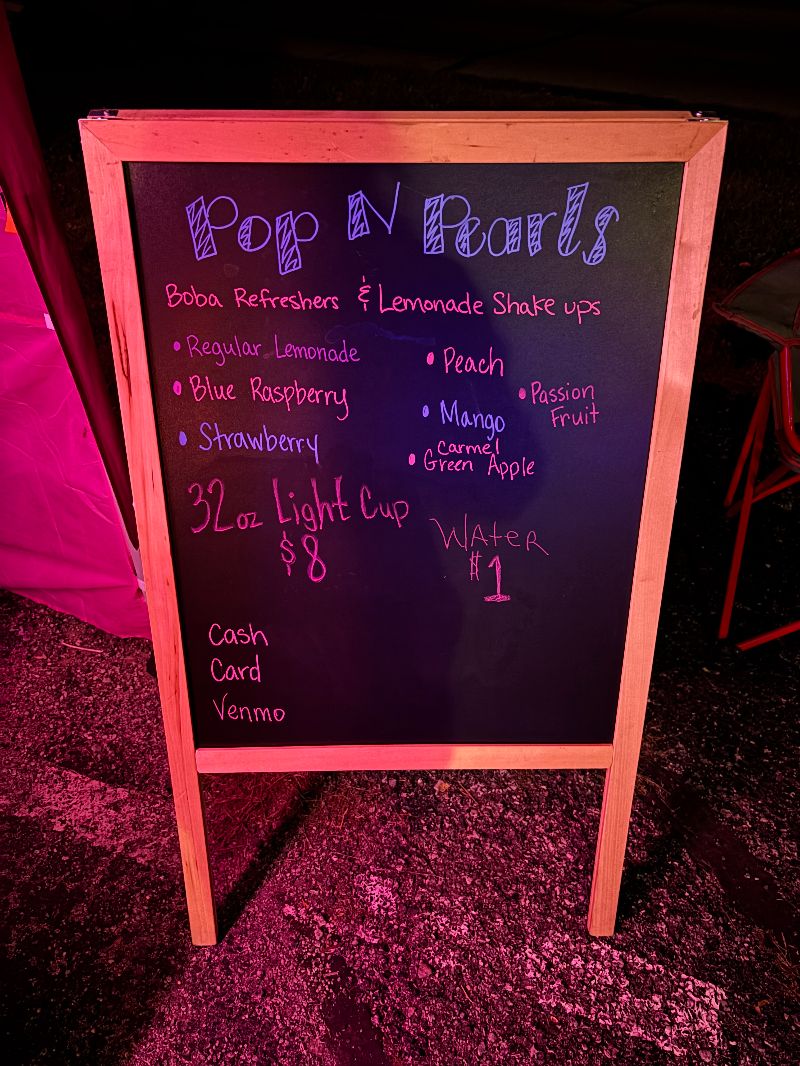 Pop N Pearls
Boba Refreshers & Lemonade Shake ups
• Regular Lemonade
• Blue Raspberry
• Strawberry
• Peach
• Mango
• Carmel Green Apple
• Passion Fruit
32oz Light Cup
$8
WATER
$1
Cash
Card
Venmo